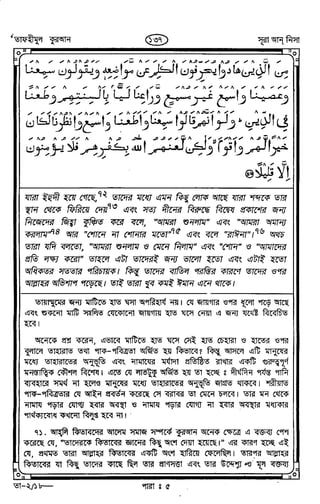 তাফহীমুল কুরআন ১৩৭ সূরা আন্ নিসা
مِنَ الَّذِينَ هَادُوا يُحَرِّفُونَ الْكَلِمَ عَنْ مَوَاضِعِهِ وَيَقُولُونَ سَمِعْنَا
وَعَصَيْنَا وَاسْمَعْ غَيْرَ مُسْمَعٍ وَرَاعِنَا لَيًّا بِأَلْسِنَتِهِمْ وَطَعْنًا
فِي الدِّينِ وَلَوْ أَنَّهُمْ قَالُوا سَمِعْنَا وَأَطَعْنَا وَاسْمَعْ وَانْظُرْنَا لَكَانَ
خَيْرًا لَهُمْ وَأَقْوَمَ وَلَٰكِنْ لَعَنَهُمُ اللَّهُ بِكُفْرِهِمْ فَلَا يُؤْمِنُونَ
إِلَّا قَلِيلًا
যারা ইহুদী হয়ে গেছে,৭২ তাদের মধ্যে এমন কিছু লোক আছে যারা শব্দকে তার
স্থান থেকে ফিরিয়ে দেয়৭৩ এবং সত্য দীনের বিরুদ্ধে বিদ্বেষ প্রকাশের জন্য
নিজেদের জিহ্বা কুঞ্চিত করে বলে, “আমরা শুনলাম” এবং “আমরা অমান্য
করলাম”৭৪ আর “শোনে না শোনার মতো”৭৫ এবং বলে “রাঈনা”।৭৬ অথচ
তারা যদি বলতো, “আমরা শুনলাম ও মেনে নিলাম” এবং “শোন” ও “আমাদের
প্রতি লক্ষ্য করো” তাহলে এটা তাদেরই জন্য ভালো হতো এবং এটাই হতো
অধিকতর সততার পরিচায়ক। কিন্তু তাদের বাতিল পরস্তির কারণে তাদের ওপর
আল্লাহর অভিশাপ পড়েছে। তাই তারা খুব কমই ঈমান এনে থাকে।
তায়াম্মুমের জন্য মাটিতে হাত ঘসা অপরিহার্য নয়। যে জায়গার ওপর ধূলো পড়ে আছে
এবং শুকনো মাটি সম্বলিত যেকোনো জায়গায় হাত ঘসে নেয়া এ জন্য যথেষ্ট বিবেচিত
হবে।
অনেকে প্রশ্ন করেন, এভাবে মাটিতে হাত ঘসে সেই হাত চেহারা ও হাতের ওপর
বুলালে তাহারাত তথা পাক-পবিত্রতা অর্জিত হয় কিভাবে? কিন্তু আসলে এটি মানুষের
মধ্যে তাহারাতের অনুভূতি এবং নামাযের মর্যাদা প্রতিষ্ঠিত রাখার একটি গুরুত্বপূর্ণ
মনস্তাত্বিক কৌশল বিশেষ। এতে যে লাভটুকু অর্জিত হয় তা হচ্ছে : দীর্ঘদিন পর্যন্ত পানি
ব্যবহারে সমর্থ না হলেও মানুষের মধ্যে তাহারাতের অনুভূতি জাগ্রত থাকবে। শরীয়াত
পাক-পবিত্রতার যে আইন প্রবর্তন করেছে সে বরাবর তা মেনে চলবে। তার মন থেকে
নামায পড়ার যোগ্য হবার অবস্থা ও নামায পড়ার যোগ্য না হবার অবস্থার মধ্যকার
পার্থক্যবোধ কখনো বিলুপ্ত হবে না।
৭১. আহলি কিতাবদের আলেম সমাজ সম্পর্কে কুরআন অনেক ক্ষেত্রে এ বক্তব্য পেশ
করেছে যে, “তাদেরকে কিতাবের জ্ঞানের কিছু অংশ দেয়া হয়েছে।” এর কারণ হচ্ছে এই
যে, প্রথমত তারা আল্লাহর কিতাবের একটি অংশ হারিয়ে ফেলেছিল। তারপর আল্লাহর
কিতাবের যা কিছু তাদের কাছে ছিল তার প্রাণসত্তা এবং তার উদ্দেশ্য ও মূল বক্তব্য
তা-২/১৮— পারা : ৫